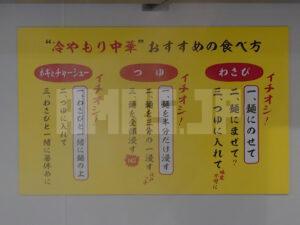 “冷やもり中華”おすすめの食べ方
わさび
イチオシ!
一、麺にのせて
二、麺にまぜて?
三、つゆに入れて
つゆ
イチオシ!
一、麺を半分だけ浸す
二、麺を三分の一浸す
三、麺を全部浸す
NG
ネギとチャーシュー
イチオシ!
一、わさびと一緒に麺の上
二、つゆに入れて
三、わさびと一緒に箸休めに